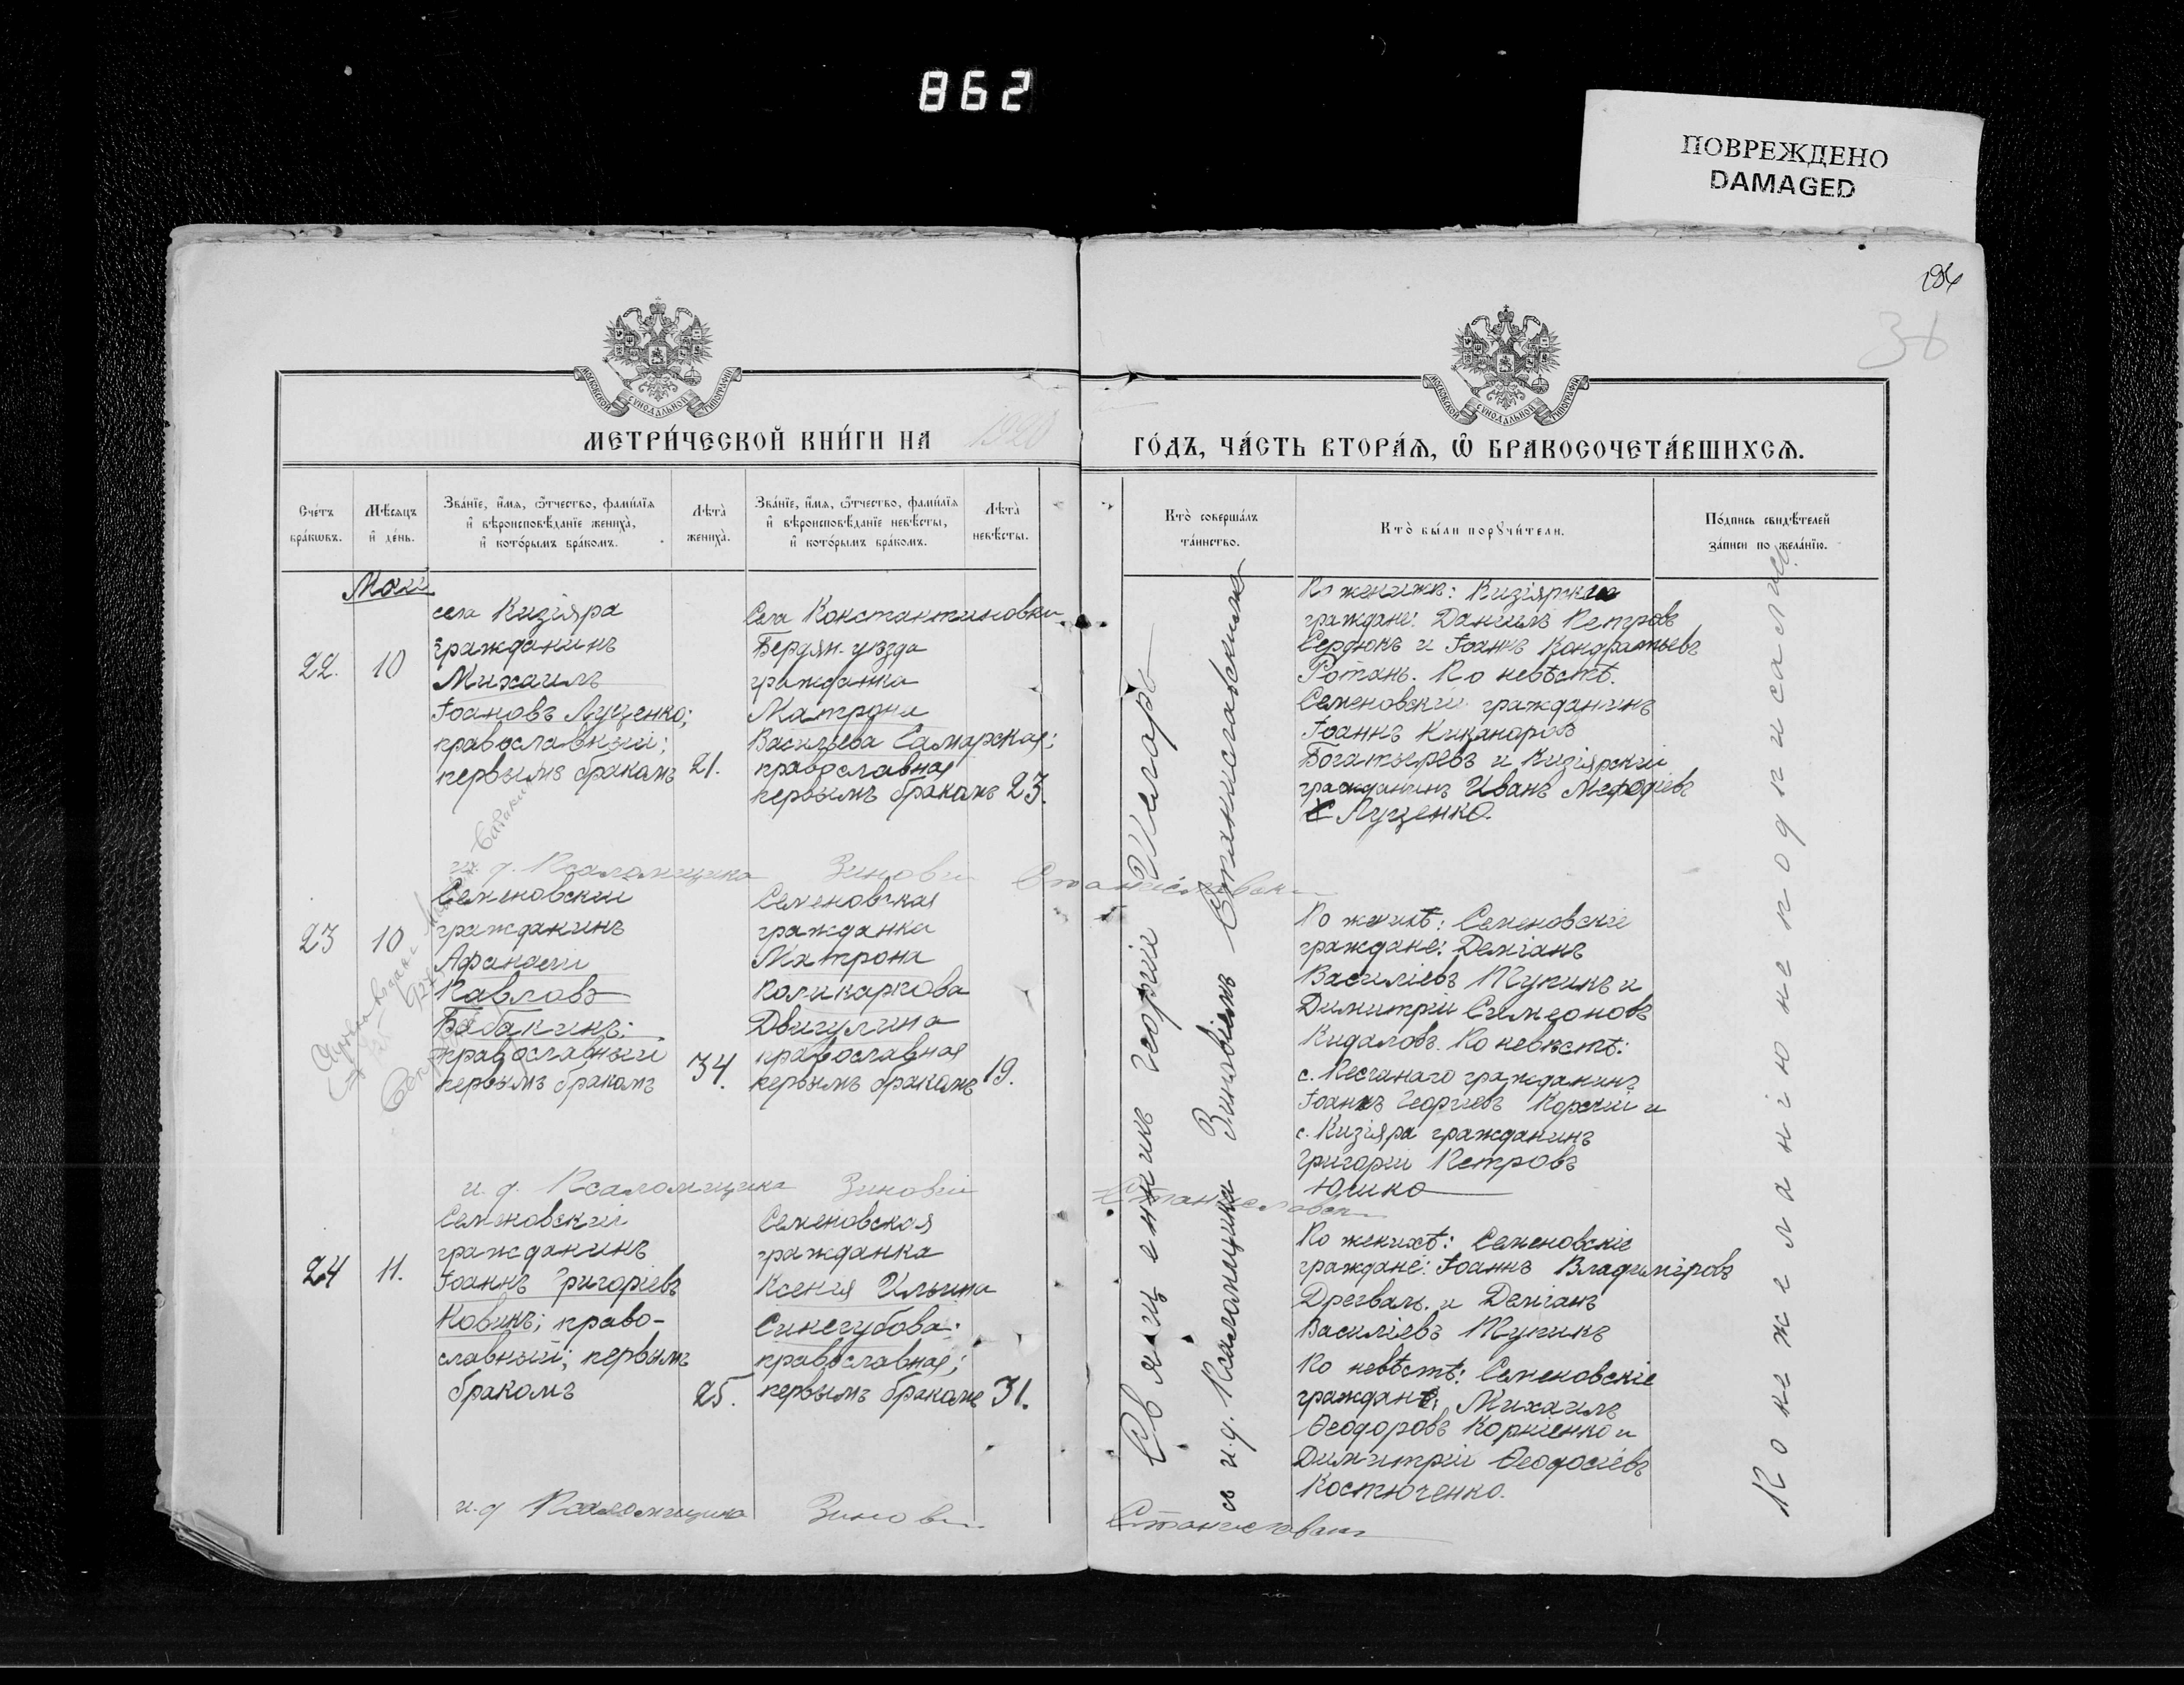 862
ПОВРЕЖДЕНО
DAMAGED
194
36
МОСКОВСКОЙ СѴНОДАЛЬНОЙ ТИПОГРАФІИ
МОСКОВСКОЙ СѴНОДАЛЬНОЙ ТИПОГРАФІИ
МЕТРИ́ЧЕСКОЙ КНИ́ГИ НА 1920
ГО́ДЪ, ЧА́СТЬ ВТОРА́Ѧ, Ѡ҆ БРАКОСОЧЕТА́ВШИХСѦ.
Сче́тъ бра́кѡвъ.
Мѣ́сѧцъ и҆ де́нь.
Зва́нїе, и҆́мѧ, ѻ҆́тчество, фами́лїѧ
и҆ вѣроисповѣ́данїе жениха̀,
и҆ кото́рымъ бра́комъ.
Лѣ́та̀ жениха̀.
Зва́нїе, и҆́мѧ, ѻ҆́тчество, фами́лїѧ
и҆ вѣроисповѣ́данїе невѣ́сты,
и҆ кото́рымъ бра́комъ.
Лѣ́та̀ невѣ́сты.
Кто̀ соверша́лъ та́инство.
Кто̀ бы́ли порꙋчи́тели.
По́дпись свидѣ́телей за́писи по жела́нїю.
Май
22.
10
села Кизіяра
гражданинъ
Михаилъ
Іоановъ Луценко;
православный;
первымъ бракомъ
21.
Села Константиновки
Бердян. уѣзда
гражданка
Матрона
Васильева Самарская;
православная
первымъ бракомъ
23.
По женихѣ: Кизіярскіе
граждане: Даніилъ Петровъ
Сердюкъ и Іоаннъ Кондратьевъ
Ротань. По невѣстѣ.
Семеновскій гражданинъ
Іоаннъ Никаноровъ
Богатыревъ и Кизіярскій
гражданинъ Иванъ Мефодіевъ
Луценко.
и. д. Псаломщика Зиновій Станиславскій
23
10
Семеновскій
гражданинъ
Афанасій
Павловъ
Бабакинъ;
православный
первымъ бракомъ
34.
Семеновская
гражданка
Матрона
Поликарпова
Двигулина
православная
первымъ бракомъ
19.
По женихѣ: Семеновскіе
граждане: Деміанъ
Василіевъ Тупикъ и
Димитрій Симеоновъ
Кидаловъ. По невѣстѣ:
с. Песчанаго гражданинъ
Іоаннъ Георгіевъ Корсчій и
с. Кизіяра гражданинъ
Григорій Петровъ
Юшко
и. д. Псаломщика Зиновій Станиславскій
24
11.
Семеновскій
гражданинъ
Іоаннъ Григоріевъ
Новикъ; право-
славный; первымъ
бракомъ
25.
Семеновская
гражданка
Ксенія Ильина
Синегубова;
православная;
первымъ бракомъ
31.
По женихѣ: Семеновскіе
граждане: Іоаннъ Владиміровъ
Дрегваль. и Деміанъ
Василіевъ Тупикъ
По невѣстѣ: Семеновскіе
граждане; Михаилъ
Ѳеодоровъ Корніенко и
Димитрій Ѳеодосіевъ
Костюченко.
и. д. Псаломщика Зиновій Станиславскій
Священникъ Георгій
съ и. д. Псаломщика Зиновіемъ Станиславскимъ
По нежеланію не подписались